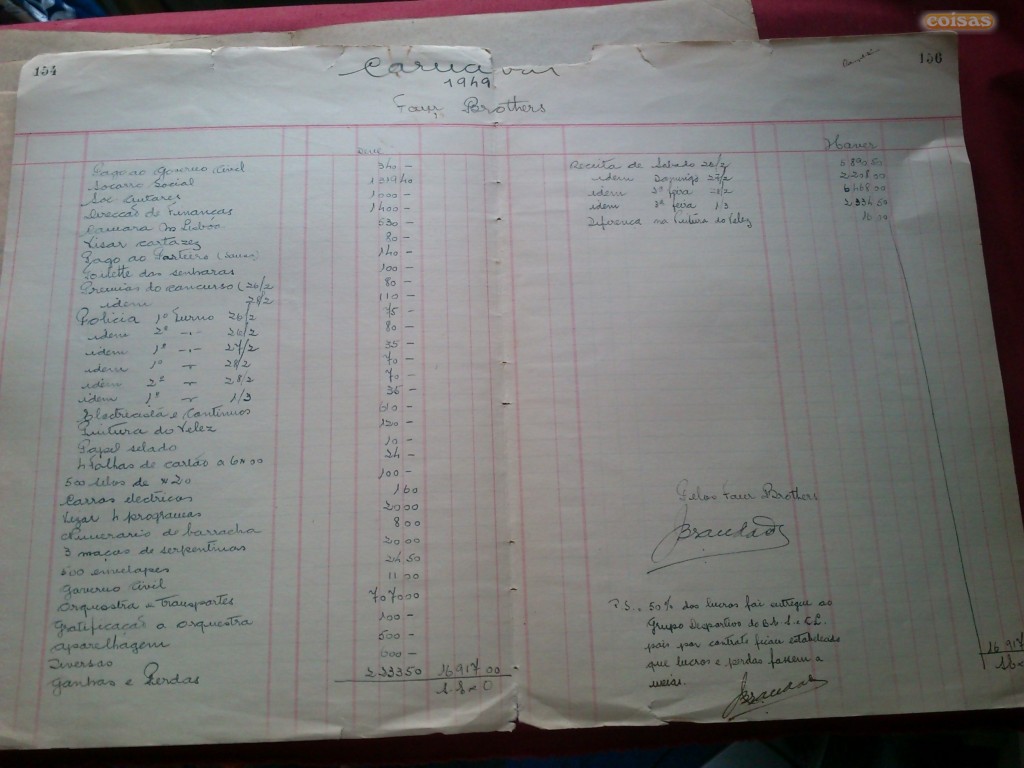 coisas
154
Carnaval
1949
Four Brothers
156
Deve
Haver
Pago ao Governo Civil 340 -
Socorro Social 1319 40
Soc Autores 1000 -
Direcção de Finanças 1400 -
Camara M Lisboa 530 -
Visar cartazes 80 -
Pago ao Porteiro 140 -
Toilette das senhoras 100 -
Premios do concurso (26/2 80 -
idem 28/2 110 -
Policia 1º Turno 26/2 75 -
idem 2º -.- 26/2 80 -
idem 1º -.- 27/2 35 -
idem 1º 28/2 70 -
idem 2º 28/2 70 -
idem 1º 1/3 35 -
Electricista e Continuos
Pintura do Velez 120 -
Papel selado 10 -
4 folhas de cartão a 6$00 24 -
500 selos de $20 100 -
Carros electricos 1 60
4 programas 20 00
Aluguer de barracha 8 00
3 maços de serpentinas 20 00
500 envelopes 24 50
Governo Civil 11 00
Orquestra e Transportes 7070 00
Gratificação a orquestra 100 -
aparelhagem 500 -
Diversos
Ganhos e Perdas 2233 50 16917 00
Receita de Sabado 26/2 5890 50
idem Domingo 27/2 2208 00
idem 2ª feira 28/2 6468 00
idem 3ª feira 1/3 2334 50
Diferença na Pintura do Velez 16 00
16917 00
Pelos Four Brothers
P.S. 50% dos lucros foi entregue ao
Grupo Desportivo do
pois por contrato ficou estabelecido
que lucros e perdas fossem a
meias.